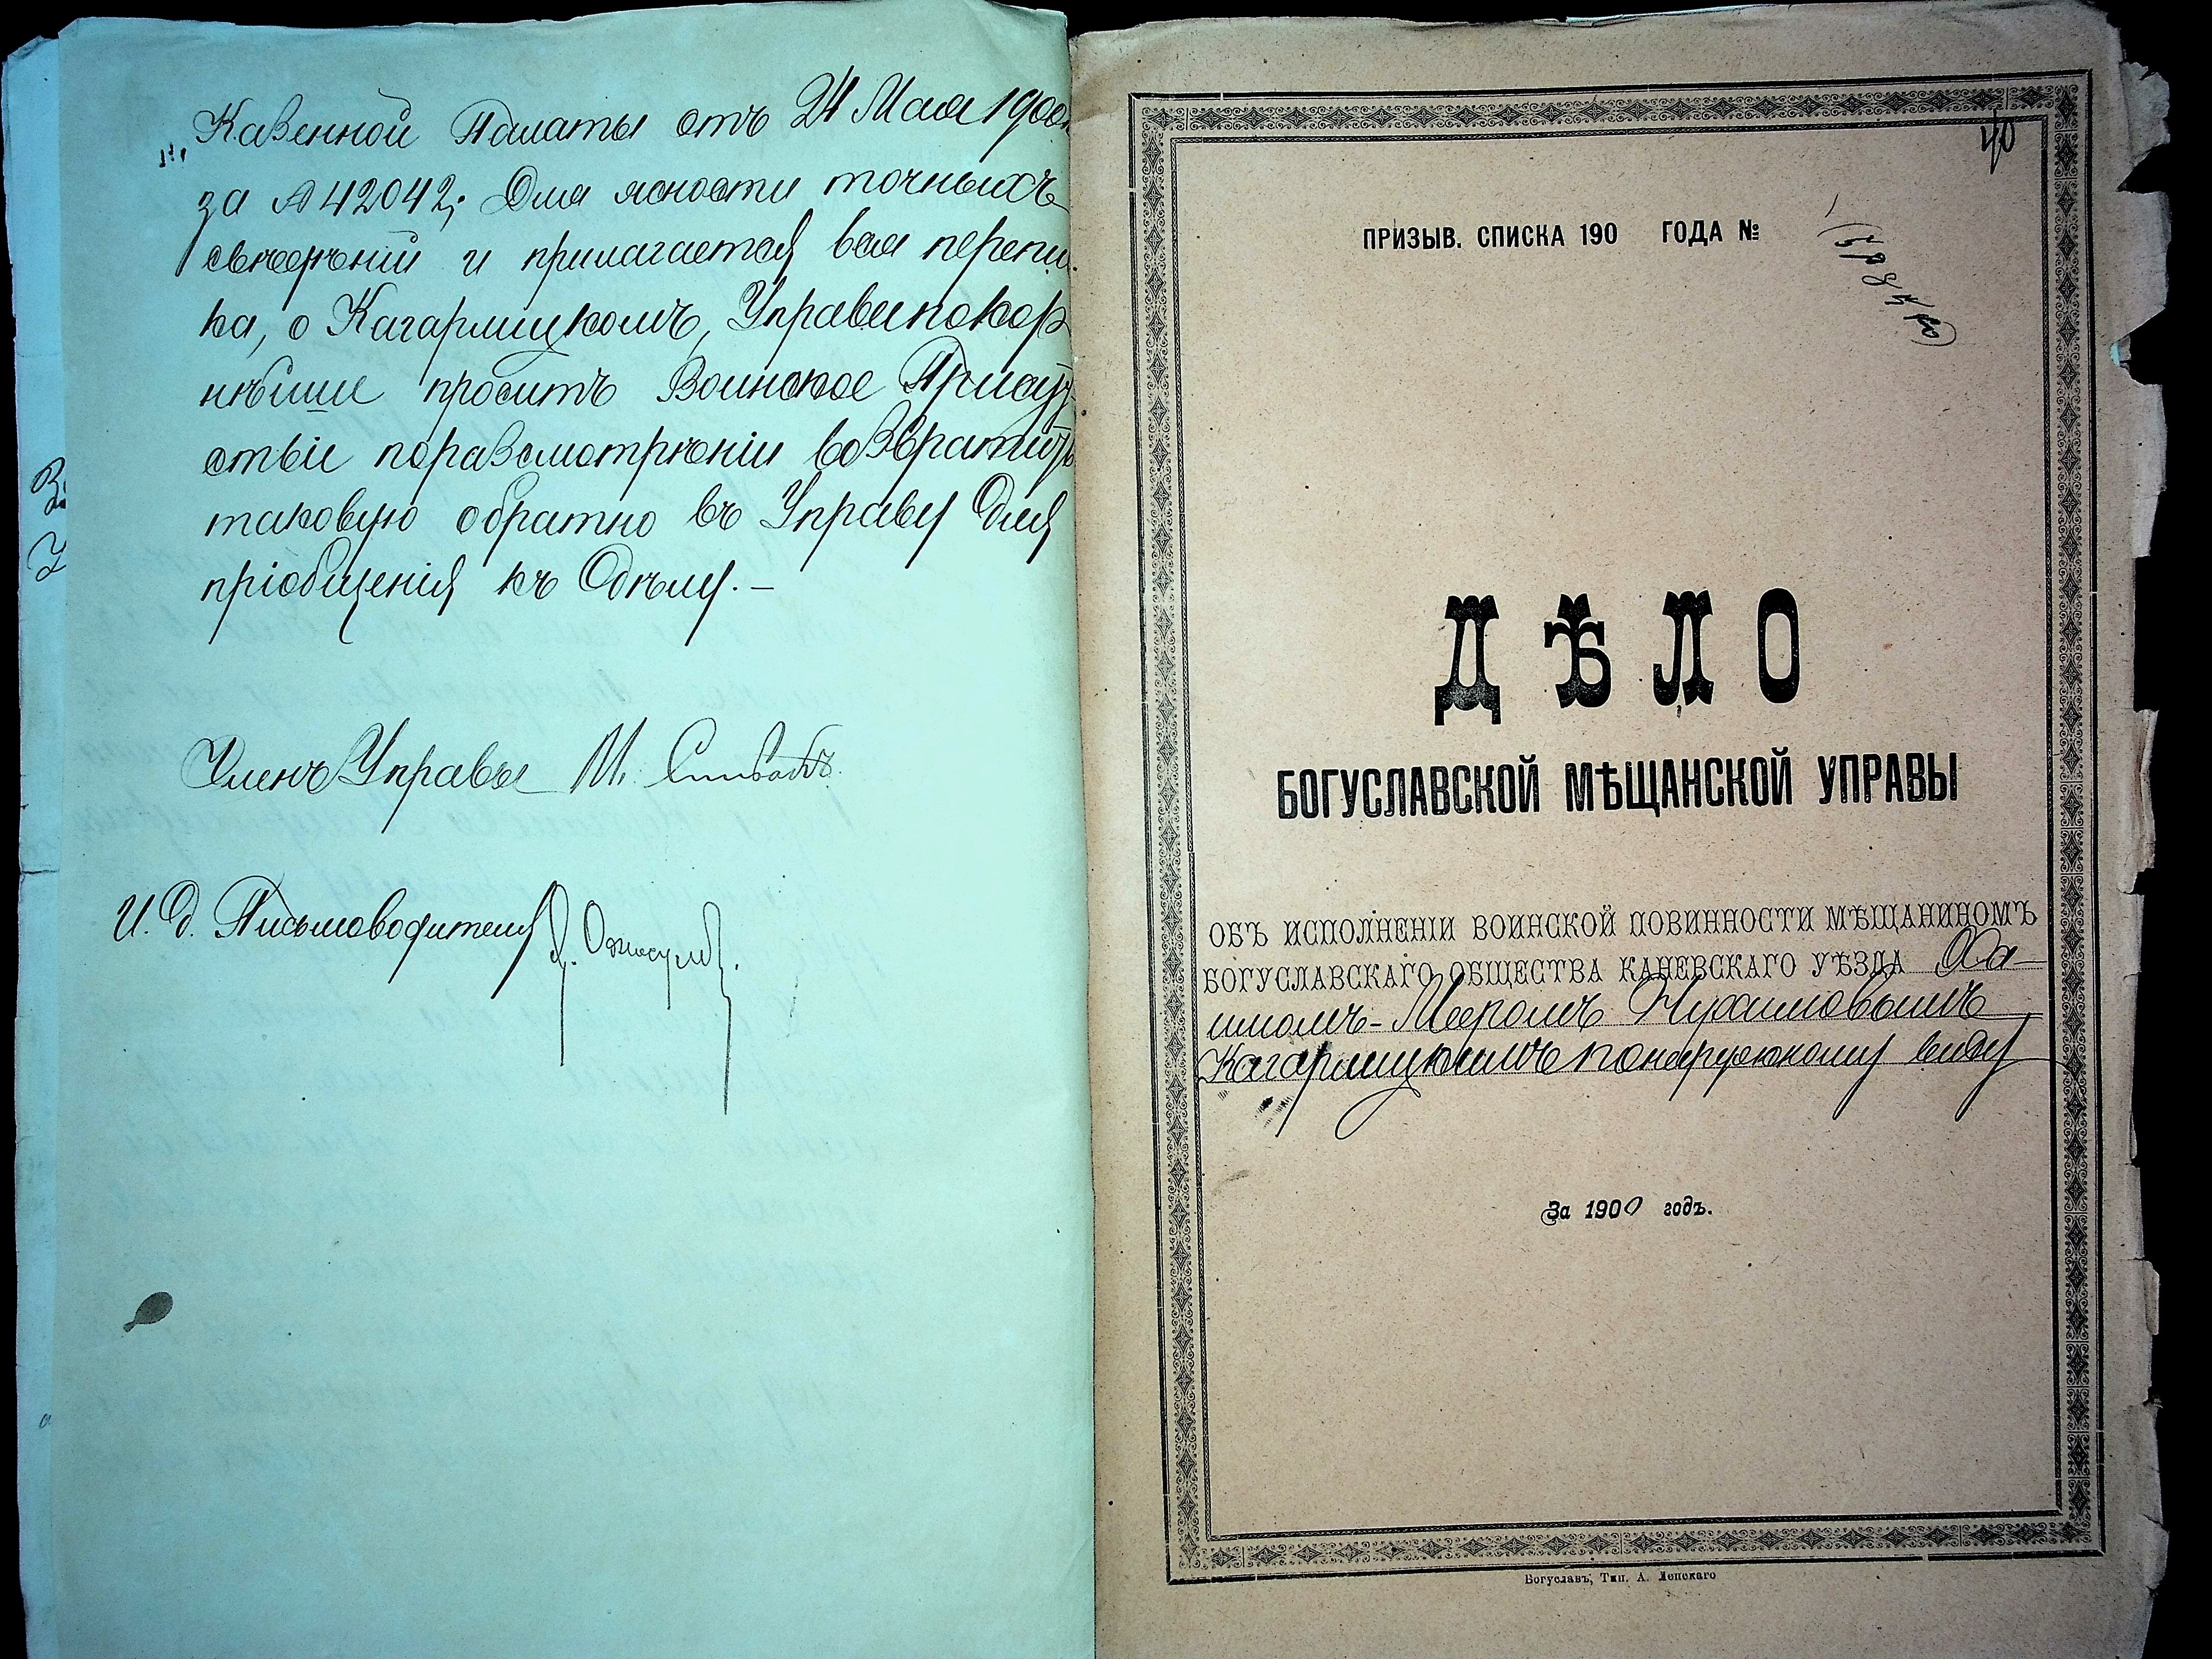 Казенной Палаты отъ 24 Мая 1900
за № 42042; Для ясности точныхъ
свѣдѣній и прилагается вся перепи
ка, о Кагарлицкомъ, Управа покор
нѣйше проситъ Воинское Присут
ствіе по разсмотрѣніи возвратить
таковую обратно въ Управу для
пріобщенія къ дѣлу. –
Членъ Управы М.
И. д. Письмоводителя
40
ПРИЗЫВ. СПИСКА 190 ГОДА №
ДѢЛО
БОГУСЛАВСКОЙ МѢЩАНСКОЙ УПРАВЫ
ОБЪ ИСПОЛНЕНІИ ВОИНСКОЙ ПОВИННОСТИ МѢЩАНИНОМЪ
БОГУСЛАВСКАГО ОБЩЕСТВА КАНЕВСКАГО УѢЗДА Ха-
имомъ-Меромъ Нухимовымъ
Кагарлицкимъ по наружному виду
За 1900 годъ.
Богуславъ, Тип. А. Ленскаго